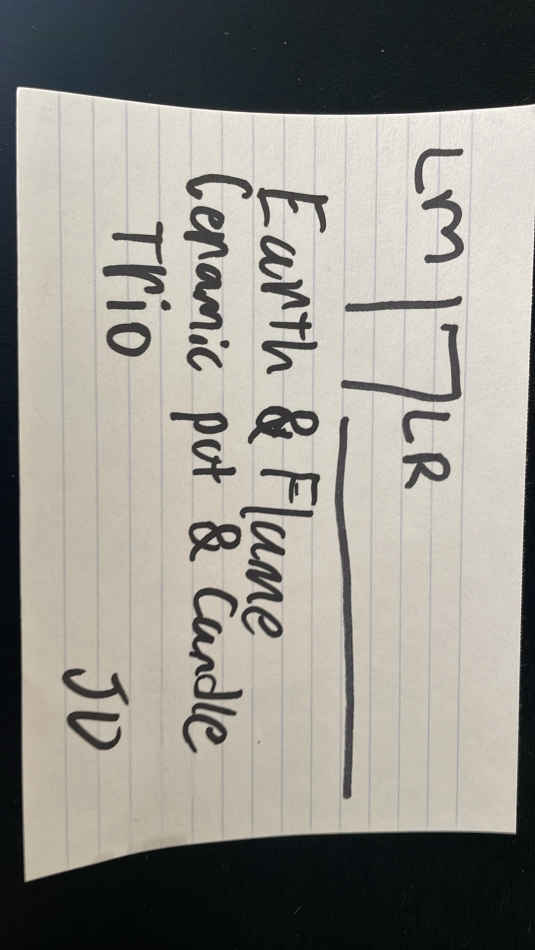 LM 17 LR
Earth & Flame
Ceramic pot & Candle
Trio
JD